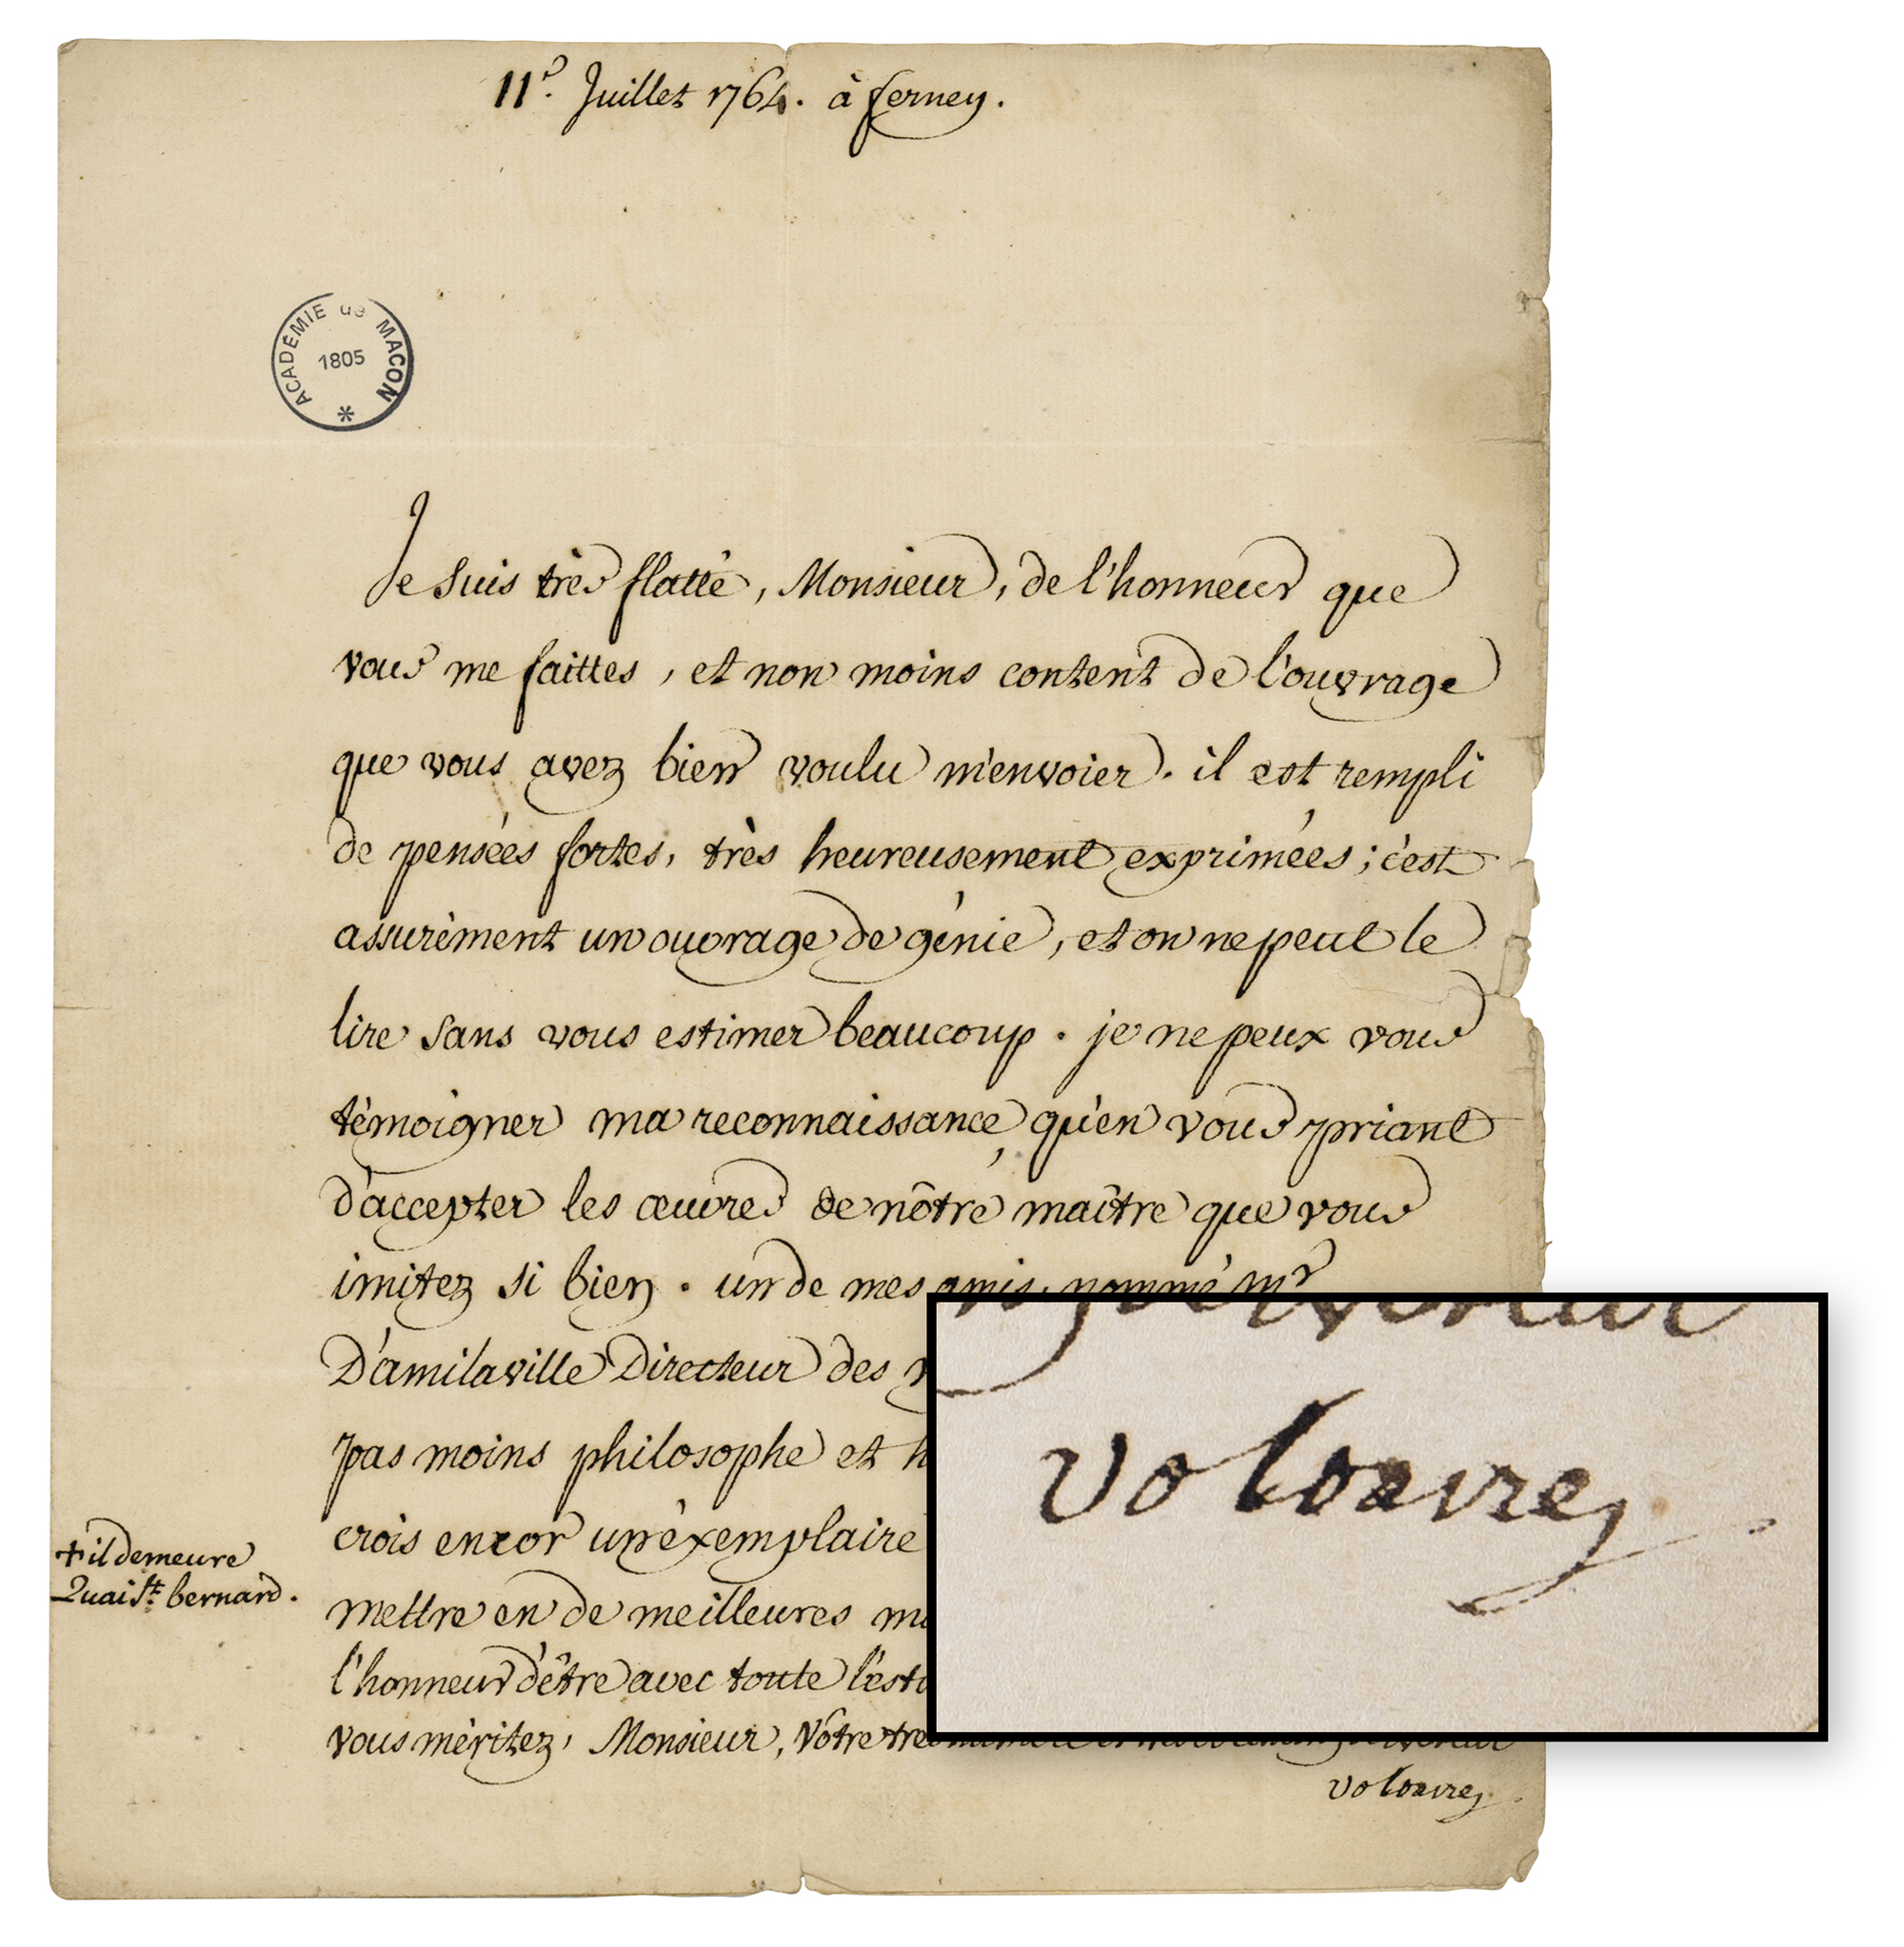 11ᵉ. Juillet 1764. à ferney.
ACADÉMIE de MACON
1805
Je suis très flatté, Monsieur, de l'honneur que
vous me faittes, et non moins content de l'ouvrage
que vous avez bien voulu m'envoier. il est rempli
de pensées fortes, très heureusement exprimées; c'est
assurément un ouvrage de génie, et on ne peut le
lire sans vous estimer beaucoup. je ne peux vous
témoigner ma reconnaissance qu'en vous priant
d'accepter les œuvres de nôtre maître que vous
imitez si bien. un de mes amis, nommé Mr
D'amilaville Directeur des
pas moins philosophe et
crois encor un éxemplaire
mettre en de meilleures
l'honneur d'être avec toute
vous méritez, Monsieur, Vôtre
Voltaire
+ il demeure
Quai St. bernard.
Voltaire